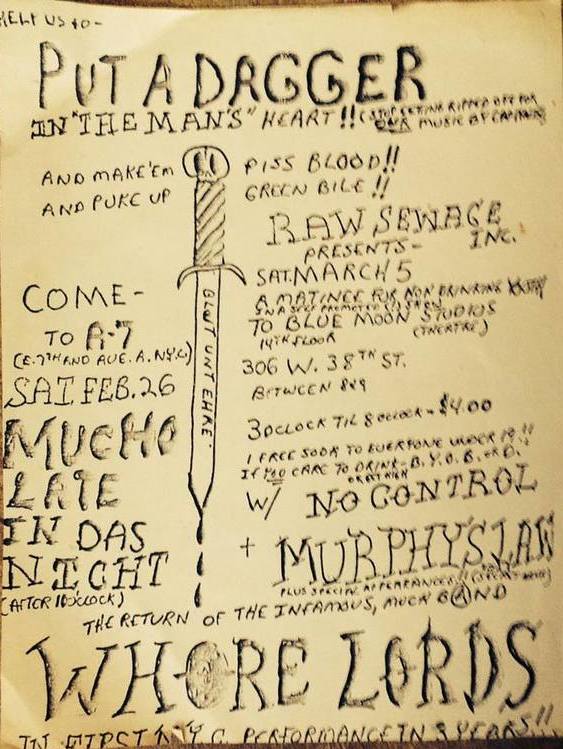 HELP US TO-
PUT A DAGGER
IN "THE MAN'S" HEART!! (STOP GETTING RIPPED OFF FOR
OUR MUSIC BY
AND MAKE 'EM PISS BLOOD!!
AND PUKE UP GREEN BILE!!
RAW SEWAGE
INC.
PRESENTS-
SAT. MARCH 5
A MATINEE FOR NON DRINKING
IN A SELF PROMOTED SHOW
TO BLUE MOON STUDIOS
14TH FLOOR (THEATRE)
306 W. 38TH ST.
BETWEEN 8&9
3 OCLOCK TIL 8 OCLOCK - $4.00
1 FREE SODA TO EVERYONE UNDER 19!!
IF YOU CARE TO DRINK - B.Y.O.B. OR D.
W/ NO CONTROL
+ MURPHY'S LAW
PLUS SPECIAL APPEARANCES!!
COME-
TO A-7
(E. 7TH AND AVE. A. N.Y.C.)
SAT. FEB. 26
MUCHO
LATE
IN DAS
NIGHT
(AFTER 10 OCLOCK)
BLUT UNT EHRE
THE RETURN OF THE INFAMOUS, MUCH BAND
WHORE LORDS
IN FIRST N.Y.C. PERFORMANCE IN 3 YEARS!!